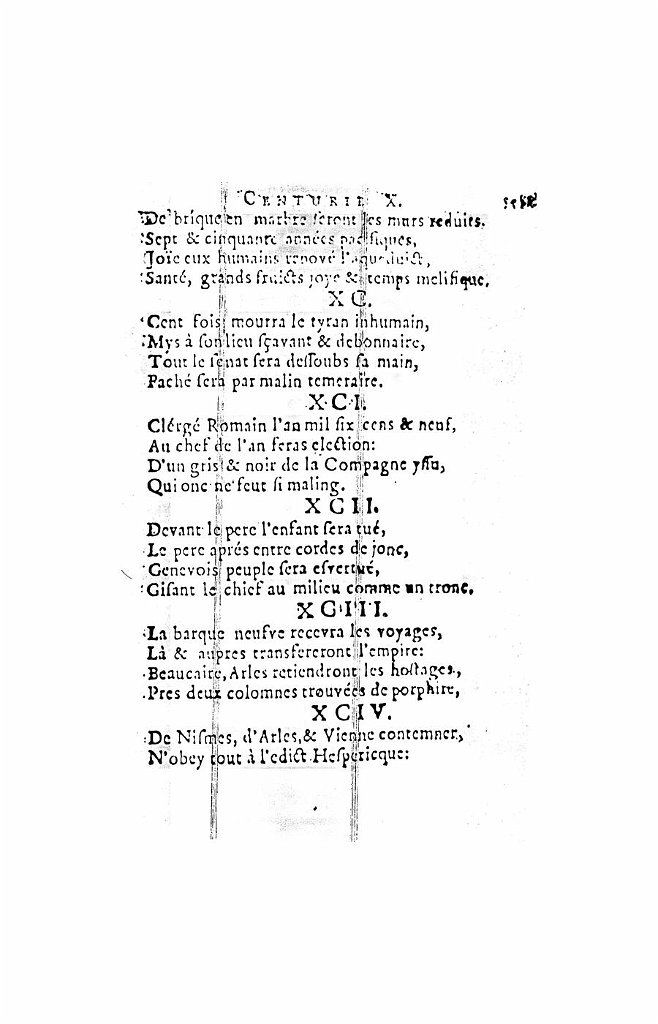 CENTURIE X.
De brique en marbre seront les murs reduits.
Sept & cinquante années pacifiques,
Joïe eux humains renové l'aqueduict,
Santé, grands fruicts joye & temps melifique.
XC.
Cent fois mourra le tyran inhumain,
Mys à son lieu sçavant & debonnaire,
Tout le senat sera dessoubs sa main,
Faché sera par malin temeraire.
XCI.
Clérgé Romain l'an mil six cens & neuf,
Au chef de l'an feras election:
D'un gris & noir de la Compagne yssu,
Qui onc ne feut si maling.
XCII.
Devant le pere l'enfant sera tué,
Le pere aprés entre cordes de jonc,
Genevois peuple sera esvertué,
Gisant le chief au milieu comme un tronc.
XCIII.
La barque neufve recevra les voyages,
Là & aupres transfereront l'empire:
Beaucaire, Arles retiendront les hostages,
Pres deux colomnes trouvées de porphire,
XCIV.
De Nismes, d'Arles, & Vienne contemner,
N'obey tout à l'edict Hespericque: